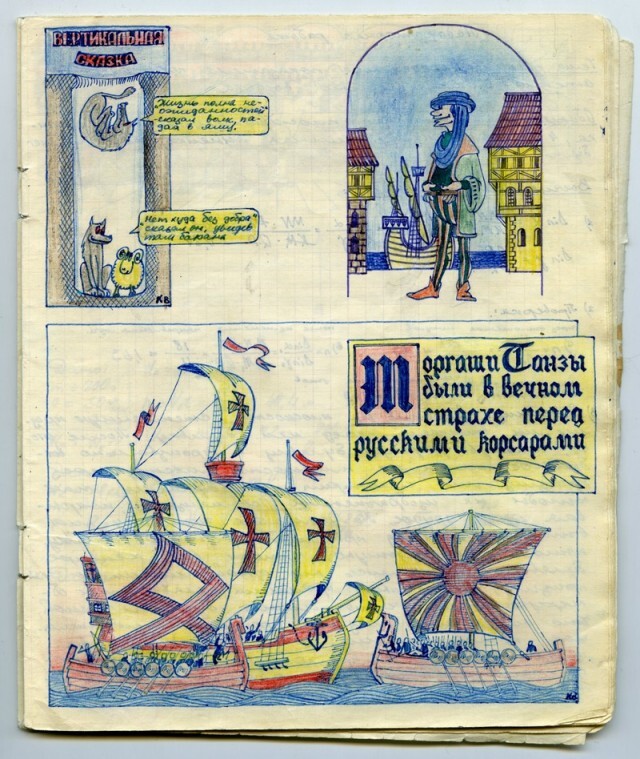 ВЕРТИКАЛЬНАЯ
СКАЗКА
"Жизнь полна не-
ожиданностей"
сказал волк, па-
дая в яму.
"Нет худа без добра"
сказал он, увидев
там барана
КВ
Торгаши Ганзы
были в вечном
страхе перед
русскими корсарами
КВ